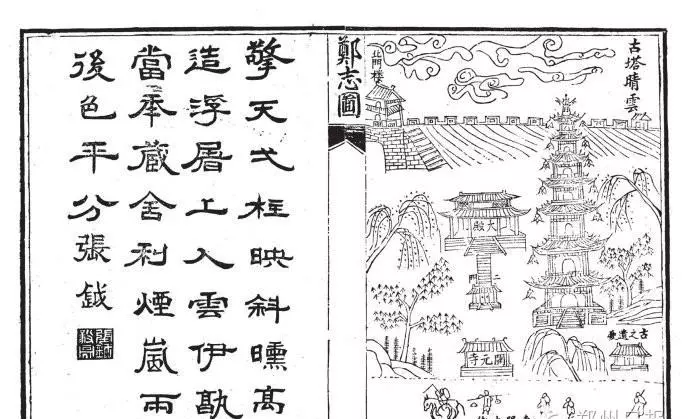 古塔晴雲
北門楼
大殿
二門
開元寺
古之遺愛
鄭志圖
擎天弌柱映斜曛高
造浮屠上入雲伊孰
當秊藏舍利煙嵐雨
後色平分張鉞
郑州